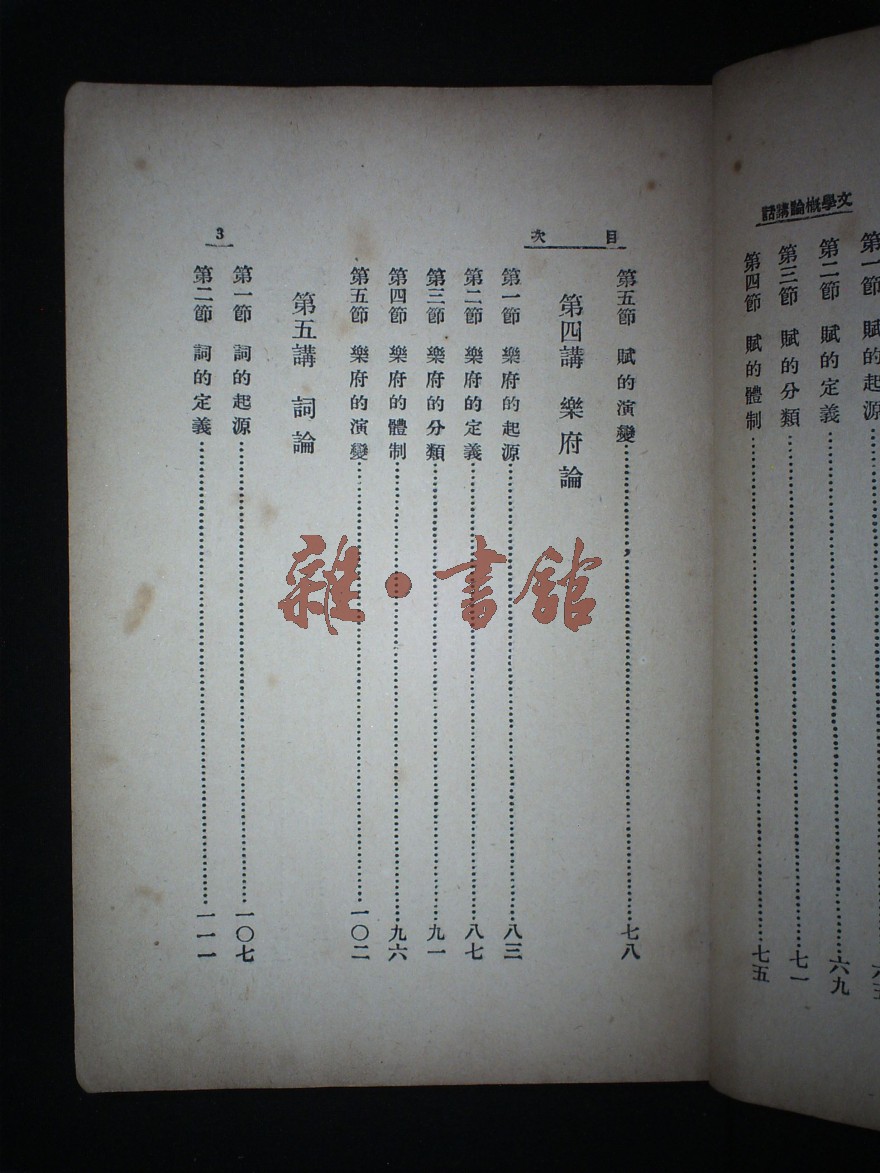 文學概論講話
第一節 賦的起源
第二節 賦的定義……六九
第三節 賦的分類……七一
第四節 賦的體制……七五
目次
3
第五節 賦的演變……七八
第四講 樂府論
第一節 樂府的起源……八三
第二節 樂府的定義……八七
第三節 樂府的分類……九一
第四節 樂府的體制……九六
第五節 樂府的演變……一〇二
第五講 詞論
第一節 詞的起源……一〇七
第二節 詞的定義……一一一
雜·書館